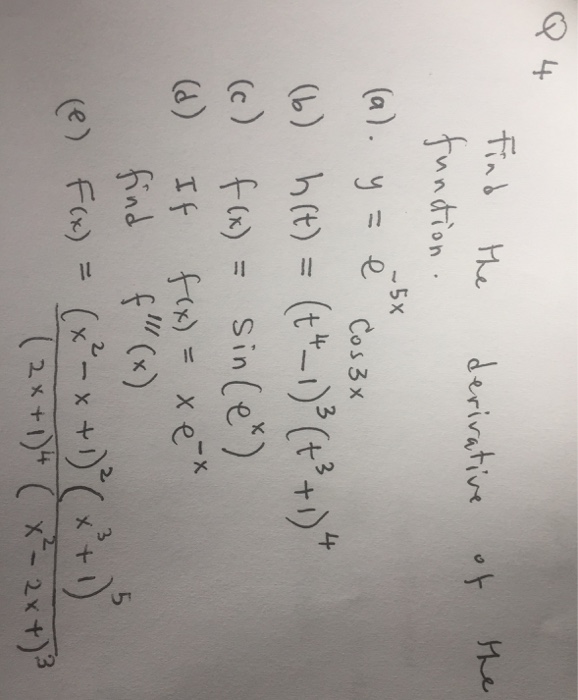 Q 4
Find the derivative of the
function.
(a). y = e^{-5x} Cos3x
(b) h(t) = (t^4 - 1)^3 (t^3 + 1)^4
(c) f(x) = Sin(e^x)
(d) If f(x) = x e^{-x}
find f'''(x)
(e) F(x) = (x^2 - x + 1)^2 (x^3 + 1)^5
(2x + 1)^4 (x^2 - 2x + )^3